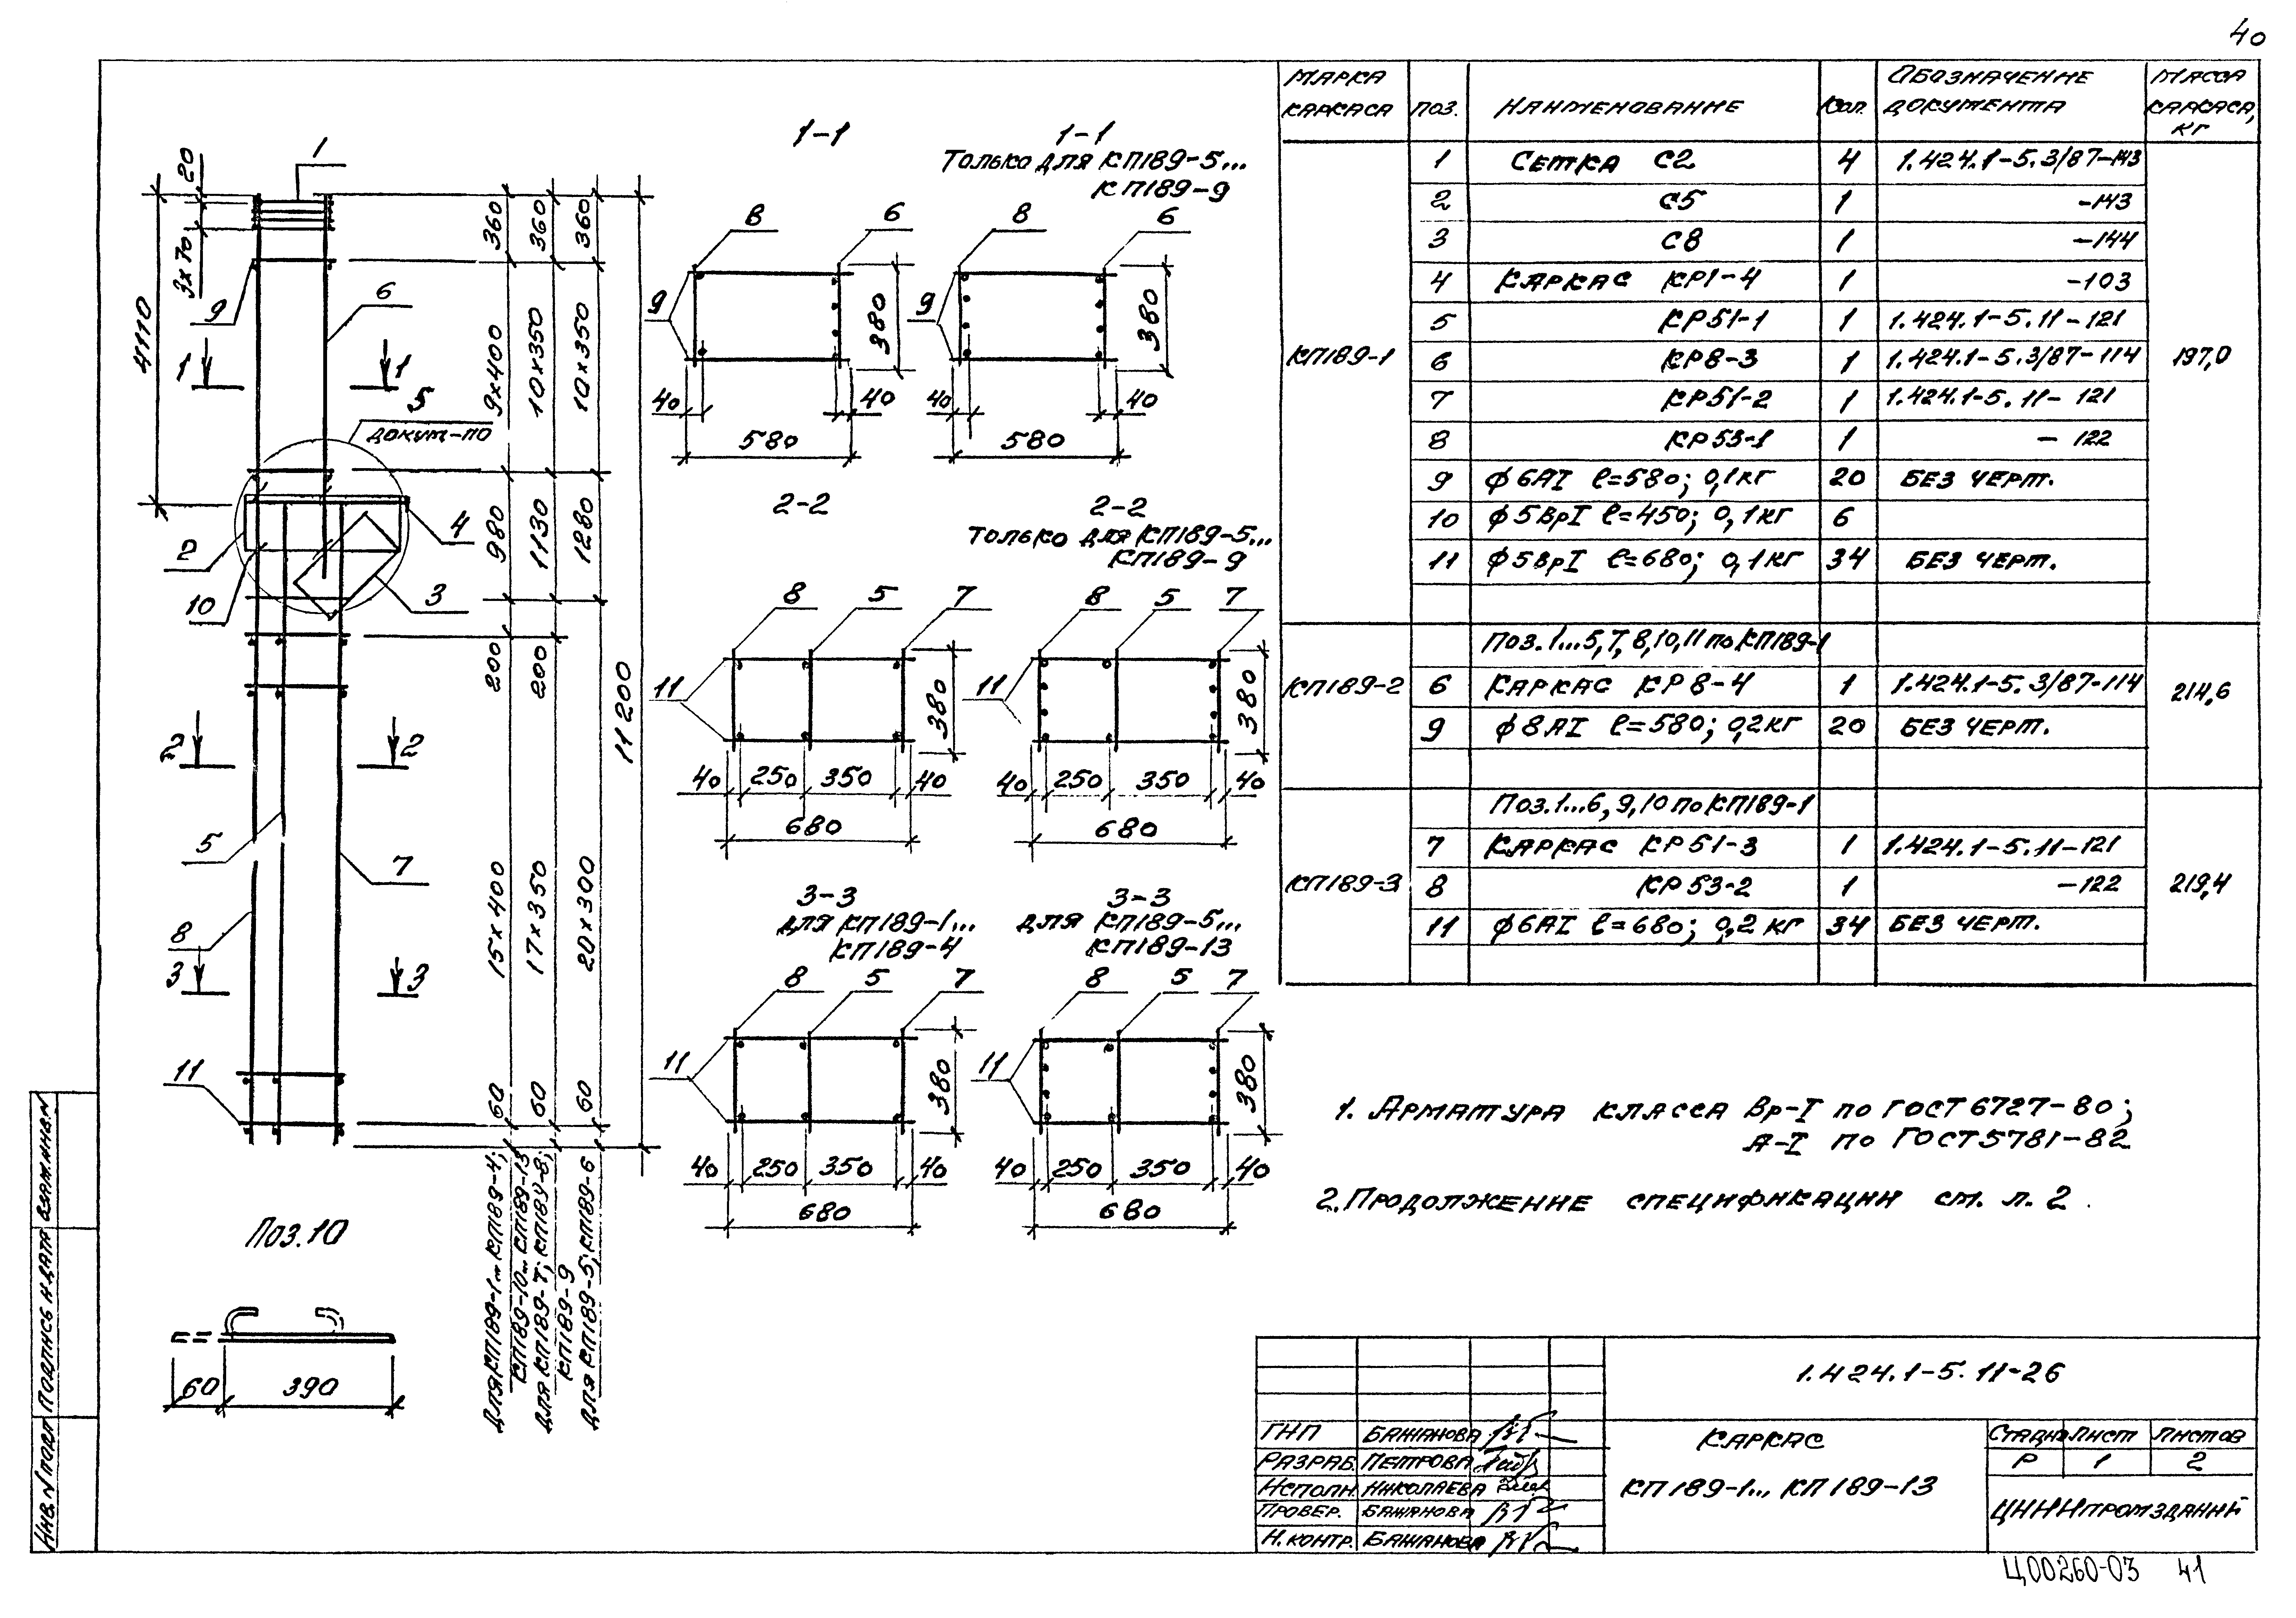 40
МАРКА КАРКАСА ПОЗ. НАИМЕНОВАНИЕ КОЛ. ОБОЗНАЧЕНИЕ ДОКУМЕНТА МАССА КАРКАСА, КГ
КП189-1 197,0
1 СЕТКА С2 4 1.424.1-5.3/87-143
2 С5 1 -143
3 С8 1 -144
4 КАРКАС КР1-4 1 -103
5 КР51-1 1 1.424.1-5.11-121
6 КР8-3 1 1.424.1-5.3/87-114
7 КР51-2 1 1.424.1-5.11-121
8 КР53-1 1 -122
9 ф6АI ℓ=580; 0,1кг 20 БЕЗ ЧЕРТ.
10 ф5ВрI ℓ=450; 0,1кг 6
11 ф5ВрI ℓ=680; 0,1кг 34 БЕЗ ЧЕРТ.
КП189-2 214,6
Поз.1...5,7,8,10,11 по КП189-1
6 КАРКАС КР8-4 1 1.424.1-5.3/87-114
9 ф8АI ℓ=580; 0,2кг 20 БЕЗ ЧЕРТ.
КП189-3 219,4
Поз.1...6,9,10 по КП189-1
7 КАРКАС КР51-3 1 1.424.1-5.11-121
8 КР53-2 1 -122
11 ф6АI ℓ=680; 0,2кг 34 БЕЗ ЧЕРТ.
1
20
3х70
4110
9
6
1 1
5
ДОКУМ-ПО
2
4
10
3
2 2
5
7
8
3 3
11
360 360 360
9х400 10х350 10х350
980 1130 1280
200 200
15х400 17х350 20х300
60 60 60
11200
ДЛЯ КП189-1...КП189-4;
КП189-10...КП189-13
ДЛЯ КП189-7; КП189-8;
КП189-9
ДЛЯ КП189-5; КП189-6
1-1
8 6
9
380
40 40
580
1-1
Только для КП189-5...
КП189-9
8 6
9
380
40 40
580
2-2
8 5 7
11
380
40 250 350 40
680
2-2
Только для КП189-5...
КП189-9
8 5 7
11
380
40 250 350 40
680
3-3
для КП189-1...
КП189-4
8 5 7
11
380
40 250 350 40
680
3-3
для КП189-5...
КП189-13
8 5 7
11
380
40 250 350 40
680
Поз.10
60 390
1. АРМАТУРА КЛАССА Вр-I ПО ГОСТ 6727-80;
А-I ПО ГОСТ 5781-82
2. ПРОДОЛЖЕНИЕ СПЕЦИФИКАЦИИ СМ. Л. 2.
1.424.1-5.11-26
ГИП БАЖАНОВА
РАЗРАБ. ПЕТРОВА
ИСПОЛН. НИКОЛАЕВА
ПРОВЕР. БАЖАНОВА
Н.КОНТР. БАЖАНОВА
КАРКАС
КП189-1... КП189-13
СТАДИЯ ЛИСТ ЛИСТОВ
Р 1 2
ЦНИИПРОМЗДАНИЙ
Ц00260-03 41
ИНВ.N ПОДЛ ПОДПИСЬ И ДАТА ВЗАМ.ИНВ.N